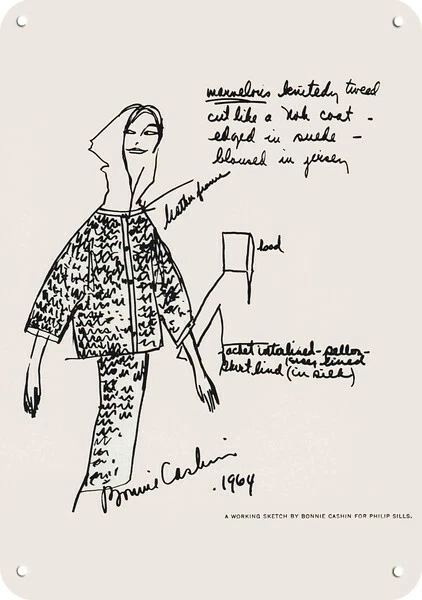 marvelous knitedy tweed
cut like a Noh coat -
edged in suede -
bloused in jersey
leather frame
jacket interlined - pellon -
lined
skirt lined (in silk)
Bonnie Cashin
.1964
A WORKING SKETCH BY BONNIE CASHIN FOR PHILIP SILLS.